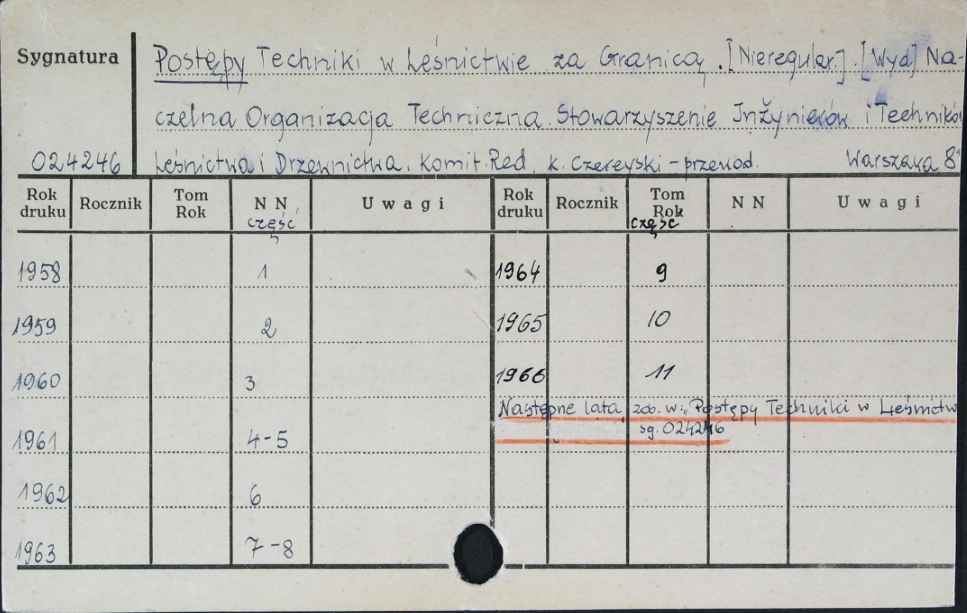 Sygnatura
Postępy Techniki w Leśnictwie za Granicą. [Nieregular.]. [Wyd] Na-
czelna Organizacja Techniczna. Stowarzyszenie Inżynierów i Techników
024246 Leśnictwa i Drzewnictwa. Komit. Red. K. Czereyski - przewod. Warszawa 8°
Rok druku Rocznik Tom Rok NN część Uwagi Rok druku Rocznik Tom Rok część NN Uwagi
1958 1 1964 9
1959 2 1965 10
1960 3 1966 11
Następne lata zob. w: Postępy Techniki w Leśnictw
sg. 024246
1961 4-5
1962 6
1963 7-8